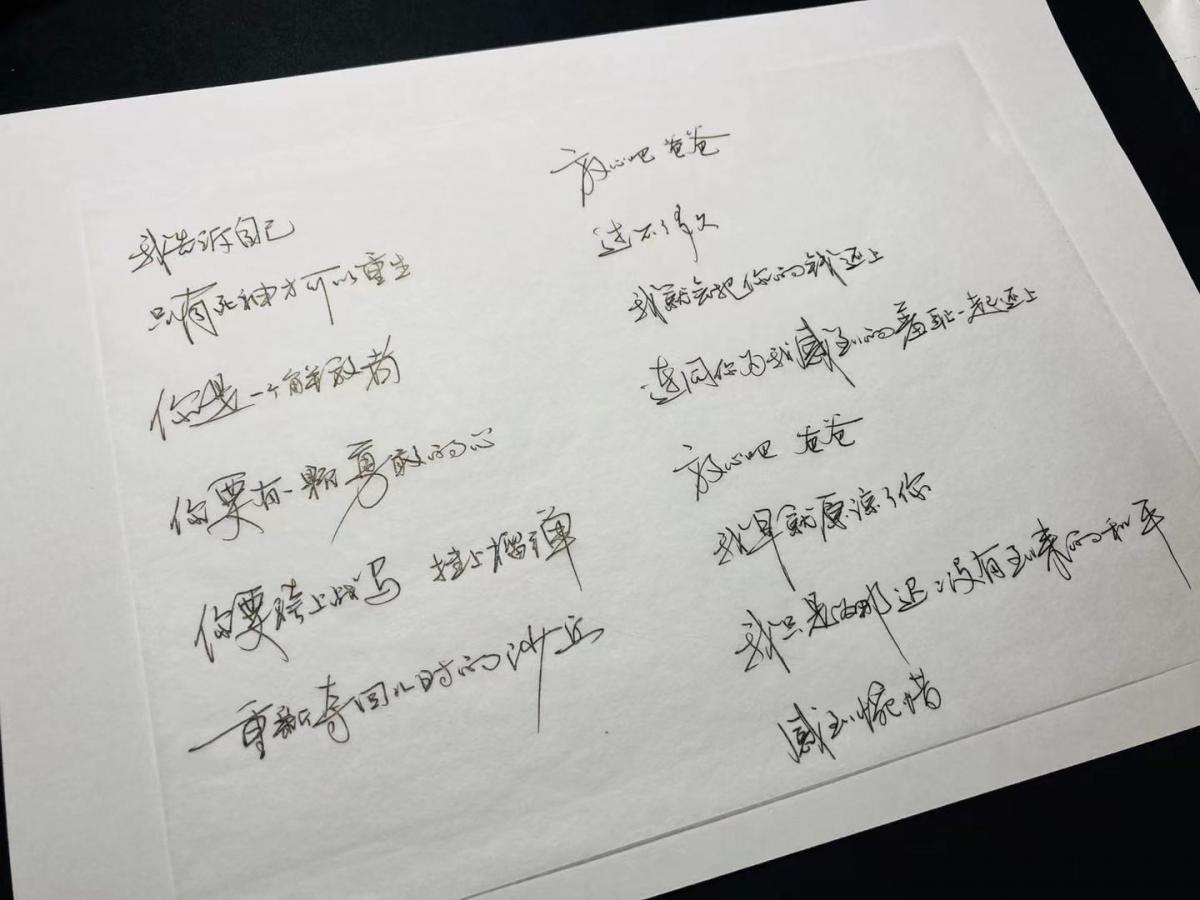 我告诉自己
只有死神才可以重生
你是一个解救者
你要有一颗勇敢的心
你要跨上战马 挂上榴弹
重新夺回儿时的沙丘
放心吧 爸爸
过不了多久
我就会把你的钱还上
连同你为我感到的羞耻一起还上
放心吧 爸爸
我早就原谅了你
我只是为那迟迟没有到来的和平
感到惋惜